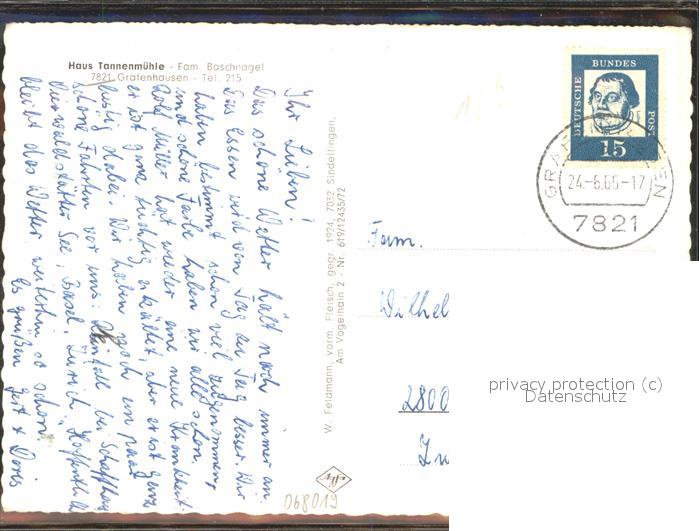 Haus Tannenmühle - Fam. Baschnagel
7821 Grafenhausen - Tel. 215
Ihr Lieben!
Das schöne Wetter hält noch immer an
Das Essen wird von Tag zu Tag besser. Wir
haben bestimmt schon viel zugenommen,
und schöne Farbe haben wir alle schon.
Rolf Müller hat wieder eine neue Krankheit
er ist ganz tüchtig erkältet, aber er ist ganz
lustig dabei. Wir haben noch ein paar
schöne Fahrten vor uns: Rheinfall bei Schaffhausen
Vierwaldstätter See, Basel, Zürich, Hoffentlich
bleibt das Wetter weiterhin so schön.
Es grüßen Gert + Doris
W. Feldmann, vorm. Fleisch, gegr. 1924, 7032 Sindelfingen,
Am Vogelhain 2 - Nr. 619/12435/72
068019
DEUTSCHE BUNDES POST
15
24.-6.65-17
7821
Fam.
Wilhel
2800
privacy protection (c)
Datenschutz